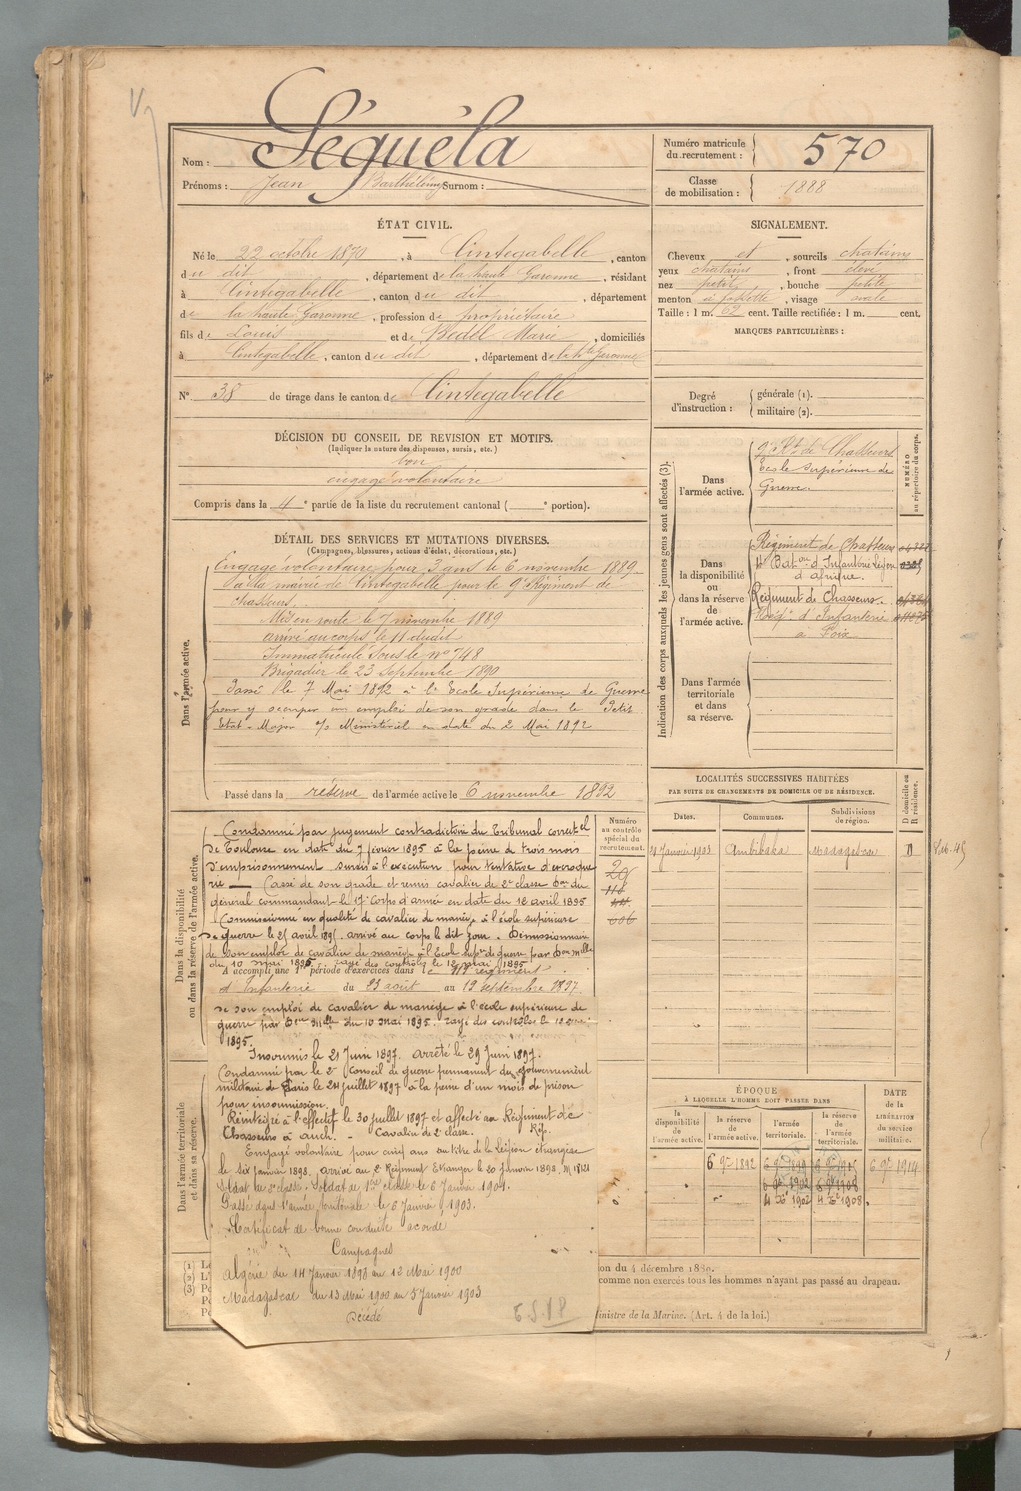 Nom : Séguéla
Prénoms : Jean Barthélémy Surnom :
Numéro matricule du recrutement : 570
Classe de mobilisation : 1888
ÉTAT CIVIL.
Né le 22 octobre 1870, à Cintegabelle, canton
du dit, département de la haute Garonne, résidant
à Cintegabelle, canton du dit, département
de la haute Garonne, profession de propriétaire
fils de Louis et de Bedel Marie, domiciliés
à Cintegabelle, canton du dit, département de la hte Garonne
N° 38 de tirage dans le canton de Cintegabelle
SIGNALEMENT.
Cheveux et, sourcils chatains
yeux chatains, front élevé
nez petit, bouche petite
menton à fossette, visage ovale
Taille : 1 m. 62 cent. Taille rectifiée : 1 m. cent.
MARQUES PARTICULIÈRES :
Degré d'instruction : générale (1).
militaire (2).
DÉCISION DU CONSEIL DE REVISION ET MOTIFS.
(Indiquer la nature des dispenses, sursis, etc.)
bon
engagé volontaire
Compris dans la 4e partie de la liste du recrutement cantonal ( e portion).
DÉTAIL DES SERVICES ET MUTATIONS DIVERSES.
(Campagnes, blessures, actions d'éclat, décorations, etc.)
Dans l'armée active.
Engagé volontaire pour 3 ans le 6 novembre 1889
à la mairie de Cintegabelle pour le 9e Régiment de
chasseurs.
Mis en route le 7 novembre 1889
arrivé au corps le 11 dudit
Immatriculé sous le no 748
Brigadier le 23 Septembre 1890
Passé le 7 Mai 1892 à l'Ecole Supérieure de Guerre
pour y occuper un emploi de son grade dans le Petit
Etat-Major Ministériel en date du 2 Mai 1892
Passé dans la réserve de l'armée active le 6 novembre 1892
Indication des corps auxquels les jeunes gens sont affectés (3).
NUMÉRO au répertoire du corps.
Dans l'armée active.
9e Rt de Chasseurs
Ecole Supérieure de
Guerre.
Dans la disponibilité ou dans la réserve de l'armée active.
Régiment de Chasseurs
Baton d'Infanterie Légère
d'Afrique.
Régiment de Chasseurs.
Régt d'Infanterie
à Foix
Dans l'armée territoriale et dans sa réserve.
LOCALITÉS SUCCESSIVES HABITÉES
PAR SUITE DE CHANGEMENTS DE DOMICILE OU DE RÉSIDENCE.
Dates. Communes. Subdivisions de région. D domicile ou R résidence.
21 Janvier 1903 Ambibaka Madagascar D
Dans la disponibilité ou dans la réserve de l'armée active.
Numéro au contrôle spécial du recrutement.
Condamné par jugement contradictoire du Tribunal correctel
de Toulouse en date du 7 février 1895 à la peine de trois mois
d'emprisonnement sursis à l'exécution pour tentative d'escroque
rie — Cassé de son grade et remis cavalier de 2e classe don du
général commandant le 17e Corps d'armée en date du 12 avril 1895
Commissionné en qualité de cavalier de manège à l'école supérieure
de guerre le 25 avril 1895 arrivé au corps le dit jour. Démissionnaire
de son emploi de cavalier de manège à l'Ecole supre de guerre par Don mlle
du 10 mai 1895. rayé des contrôles le 12 mai 1895
A accompli une 1re période d'exercices dans le régiment
d'Infanterie du 23 août au 19 septembre 1897
de son emploi de cavalier de manège à l'école supérieure de
guerre par Don Mlle du 10 mai 1895. rayé des contrôles le 12 mai
1895.
Insoumis le 21 Juin 1897. arrêté le 29 Juin 1897.
Condamné par le 2e Conseil de guerre permanent du gouvernement
militaire de Paris le 24 juillet 1897 à la peine d'un mois de prison
pour insoumission.
Réintégré à l'effectif le 30 juillet 1897 et affecté au Régiment de
Chasseurs à Auch. - Cavalier de 2e classe. Rép.
Engagé volontaire pour cinq ans au titre de la Légion étrangère
le six janvier 1898. arrivé au 2e Régiment Etranger le 20 janvier 1898.
Soldat de 2e classe. Soldat de 1ère classe le 6 Janvier 1901.
Passé dans l'armée territoriale le 6 Janvier 1903.
Certificat de bonne conduite accordé
Campagnes
Algérie du 14 Janvier 1898 au 12 Mai 1900
Madagascar du 13 Mai 1900 au 5 Janvier 1903
Décédé
Dans l'armée territoriale et dans sa réserve.
ÉPOQUE
À LAQUELLE L'HOMME DOIT PASSER DANS
la disponibilité de l'armée active. la réserve de l'armée active. l'armée territoriale. la réserve de l'armée territoriale.
DATE de la LIBÉRATION du service militaire.
6 9bre 1892
6 9bre 1914
on du 4 décembre 1889.
comme non exercés tous les hommes n'ayant pas passé au drapeau.
Ministre de la Marine. (Art. 4 de la loi.)